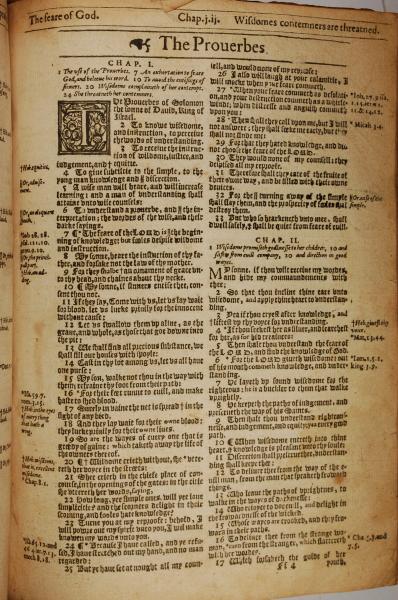 The feare of God. Chap.j.ij. Wisedomes contemners are threatned.
The Prouerbes
CHAP. I.
1 The vse of the Prouerbes. 7 An exhortation to feare
God, and beleeue his word. 10 To auoyd the entisings of
sinners. 20 Wisedome complaineth of her contempt.
24 She threatneth her contemners.
THe Prouerbes of Solomon
the sonne of Dauid, King of
Israel.
2 To knowe wisedome
and instruction, to perceiue
the words of vnderstanding.
3 To receiue the instruction
of wisdome, iustice, and
iudgement, and equitie.
4 To giue subtiltie to the simple, to the
yong man knowledge and discretion.
5 A wise man will heare, and will increase
learning: and a man of vnderstanding shall
attaine vnto wise counsels:
6 To vnderstand a prouerbe, and the interpretation;
the wordes of the wise, and their
darke sayings.
7 The feare of the LORD is the beginning
of knowledge: but fooles despise wisdome
and instruction.
8 My sonne, heare the instruction of thy father,
and forsake not the law of thy mother.
9 For they shalbe an ornament of grace vnto
thy head, and chaines about thy necke.
10 My sonne, if sinners entice thee, consent
thou not.
11 If they say, Come with vs, let vs lay wait
for blood, let vs lurke priuily for the innocent
without cause:
12 Let vs swallow them vp aliue, as the
graue, and whole, as those that goe downe into
the pit:
13 We shall find all precious substance, we
shall fill our houses with spoyle:
14 Cast in thy lot among vs, let vs all haue
one purse:
15 My son, walke not thou in the way with
them; refraine thy foot from their path:
16 For their feet runne to euill, and make
haste to shed blood.
17 Surely in vaine the net is spread in the
sight of any bird.
18 And they lay wait for their owne blood:
they lurke priuily for their owne liues.
19 So are the wayes of euery one that is
greedy of gaine: which taketh away the life of
the owners thereof.
20 Wisedome crieth without, she vttereth
her voyce in the streets:
21 She crieth in the chiefe place of concourse,
in the openings of the gates: in the citie
she vttereth her words, saying,
22 How long, ye simple ones, will ye loue
simplicitie? and the scorners delight in their
scorning, and fooles hate knowledge?
23 Turne you at my reproofe: behold, I
will powre out my spirit vnto you, I will make
knowen my words vnto you.
24 Because I haue called, and ye refused,
I haue stretched out my hand, and no man
regarded:
25 But ye haue set at nought all my counsell,
and would none of my reproofe:
26 I also will laugh at your calamitie, I
will mocke when your feare commeth.
27 When your feare commeth as desolation,
and your destruction commeth as a whirlewinde;
when distresse and anguish commeth
vpon you:
28 Then shall they call vpon me, but I will
not answere; they shall seeke me early, but they
shall not finde me:
29 For that they hated knowledge, and did
not choose the feare of the LORD.
30 They would none of my counsell: they
despised all my reproofe.
31 Therefore shall they eate of the fruite of
their owne way, and be filled with their owne
deuices.
32 For the turning away of the simple
shall slay them, and the prosperitie of fooles shal
destroy them.
33 But who so hearkeneth vnto mee, shall
dwell safely, and shall be quiet from feare of euill.
CHAP. II.
1 Wisedome promiseth godlinesse to her children, 10 and
safetie from euill company, 20 and direction in good
wayes.
MY sonne, if thou wilt receiue my words,
and hide my commandements with
thee;
2 So that thou encline thine eare vnto
wisedome, and apply thine heart to vnderstanding.
3 Yea if thou cryest after knowledge, and
liftest vp thy voyce for vnderstanding:
4 If thou seekest her as siluer, and searchest
for her, as for hid treasures:
5 Then shalt thou vnderstand the feare of
the LORD, and find the knowledge of God.
6 For the LORD giueth wisedome: out
of his mouth commeth knowledge, and vnderstanding.
7 He layeth vp sound wisedome for the
righteous: he is a buckler to them that walke
vprightly.
8 He keepeth the pathes of iudgement, and
preserueth the way of his Saints.
9 Then shalt thou vnderstand righteousnesse,
and iudgement, and equity; yea euery good
path.
10 When wisedome entreth into thine
heart, and knowledge is pleasant vnto thy soule:
11 Discretion shall preserue thee, vnderstanding
shall keepe thee:
12 To deliuer thee from the way of the euill
man, from the man that speaketh froward
things.
13 Who leaue the pathes of vprightnes, to
walke in the wayes of darkenesse:
14 Who reioyce to doe euill, and delight in
the frowardnesse of the wicked.
15 Whose wayes are crooked, and they froward
in their paths.
16 To deliuer thee from the strange woman,
euen from the stranger, which flattereth
with her wordes:
17 Which forsaketh the guide of her
Ff 4 youth,